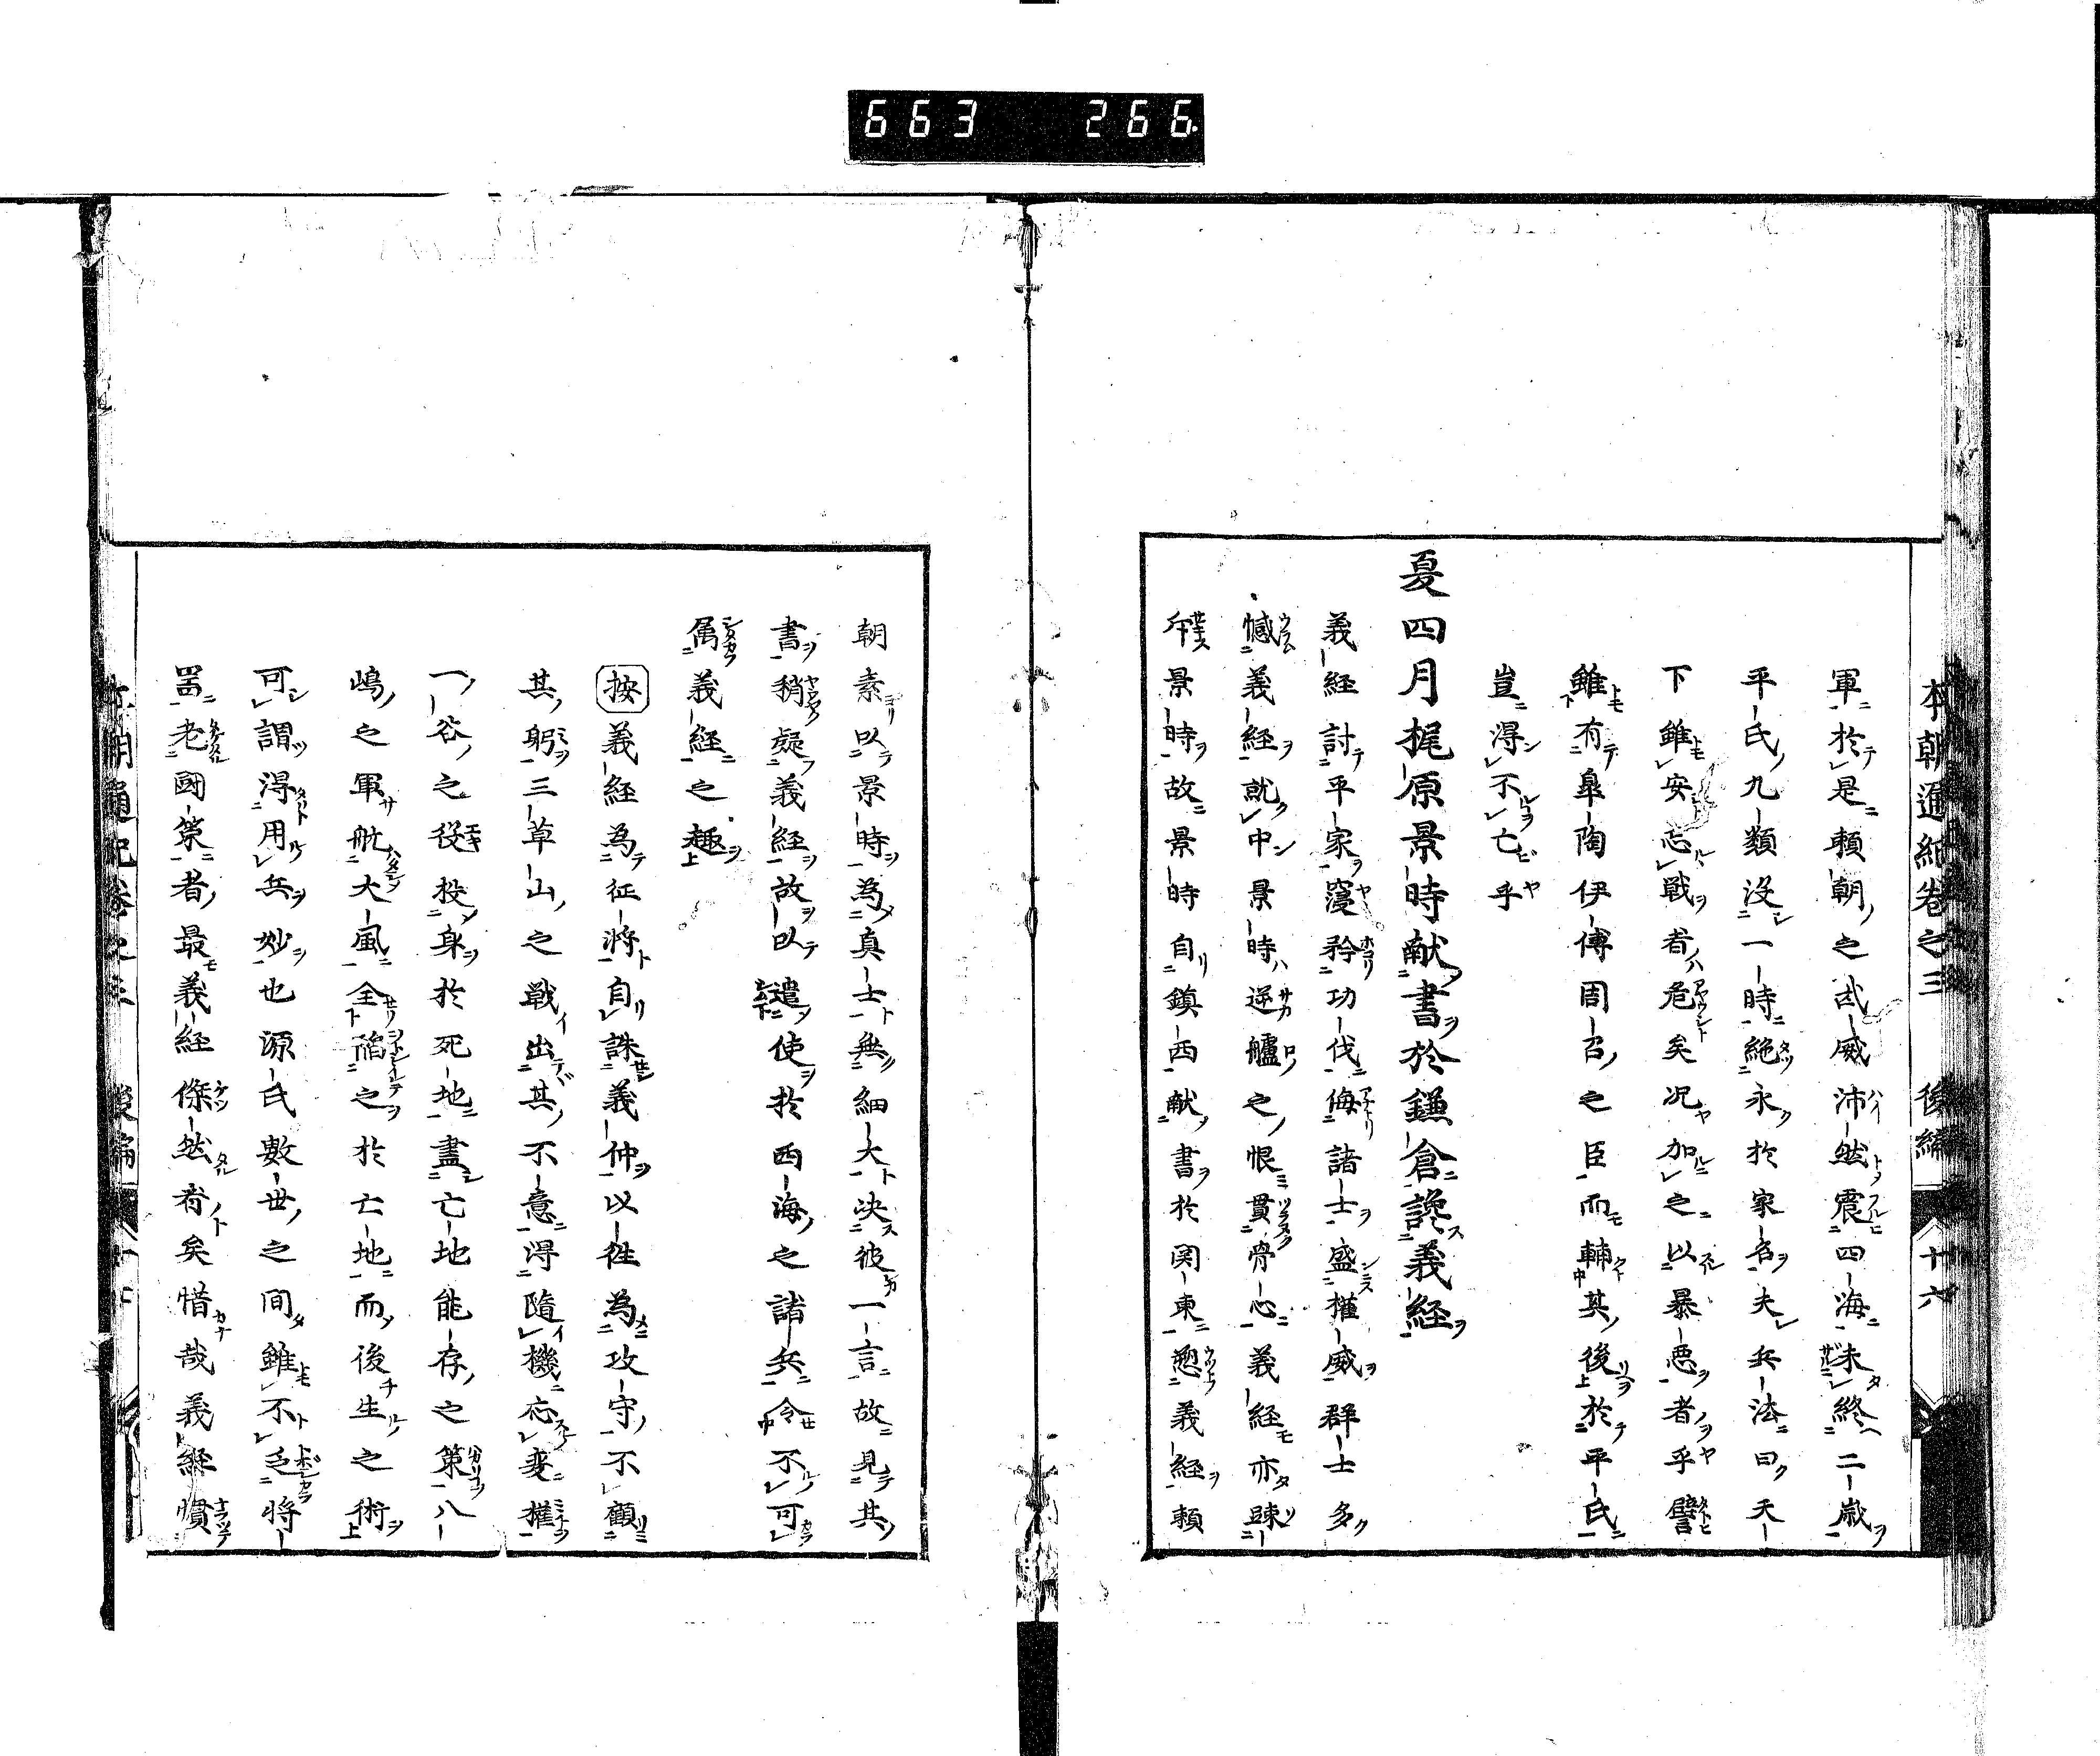 663 266
本朝通紀卷之三 後編 十六
軍於是頼朝之武威沛然震四海未終二歳
平氏九類没一時絶永於家名夫兵法曰天
下雖安忘戦者危矣况加之以暴悪者乎譬
雖有皐陶伊傅周召之臣而輔其後於平氏
豈得不亡乎
夏四月梶原景時献書於鎌倉讒義経
義経討平家寖矜功伐侮諸士盛権威群士多
憾義経就中景時逆艫之恨貫骨心義経亦踈
景時故景時自鎮西献書於関東愬義経頼
朝素以景時為真士無細大决彼一言故見其
書稍疑義経故以遣使於西海之諸兵令不可
属義経之趣
按義経為征将自誅義仲以往為攻守不顧
其躬三草山之戦出其不意得隨機応変権
一谷之役投身於死地盡亡地能存之策八
嶋之軍航大風全陥之於亡地而後生之術
可謂得用兵妙也源氏數世之間雖不乏将
噐老國策者最義経傑然者矣惜哉義経慣